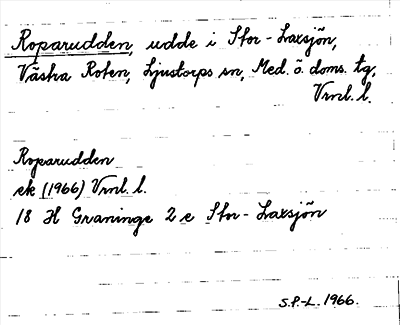 Roparudden, udde i Stor-Laxsjön,
Västra Roten, Ljustorps sn, Med. ö. doms. tg,
Vrnl. l.
Roparudden
ek (1966) Vrnl. l.
18 H Graninge 2 e Stor-Laxsjön
S.P.-L. 1966.